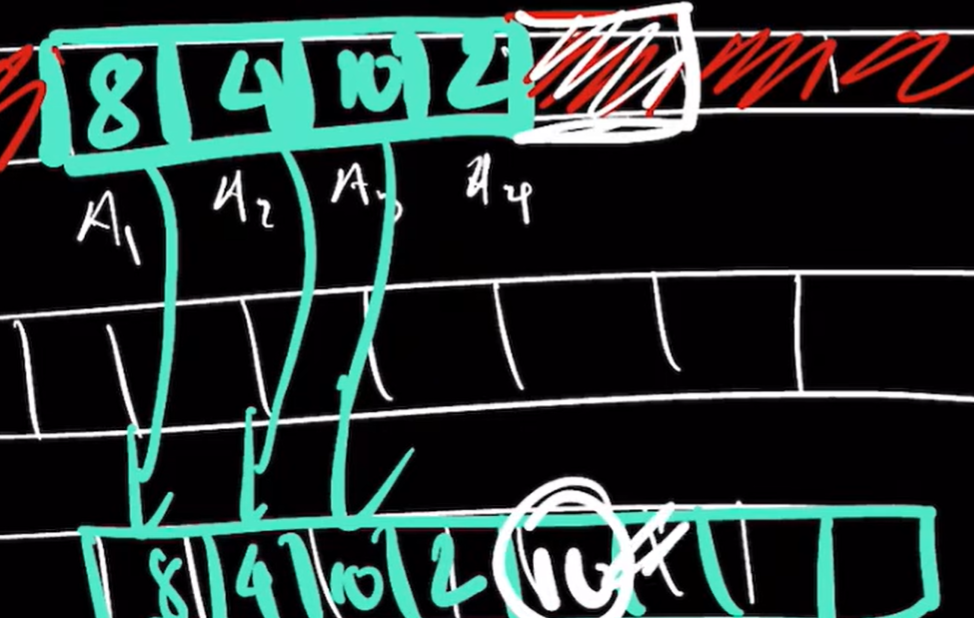 8 4 10 2
A1 A2 A3 A4
8 4 10 2